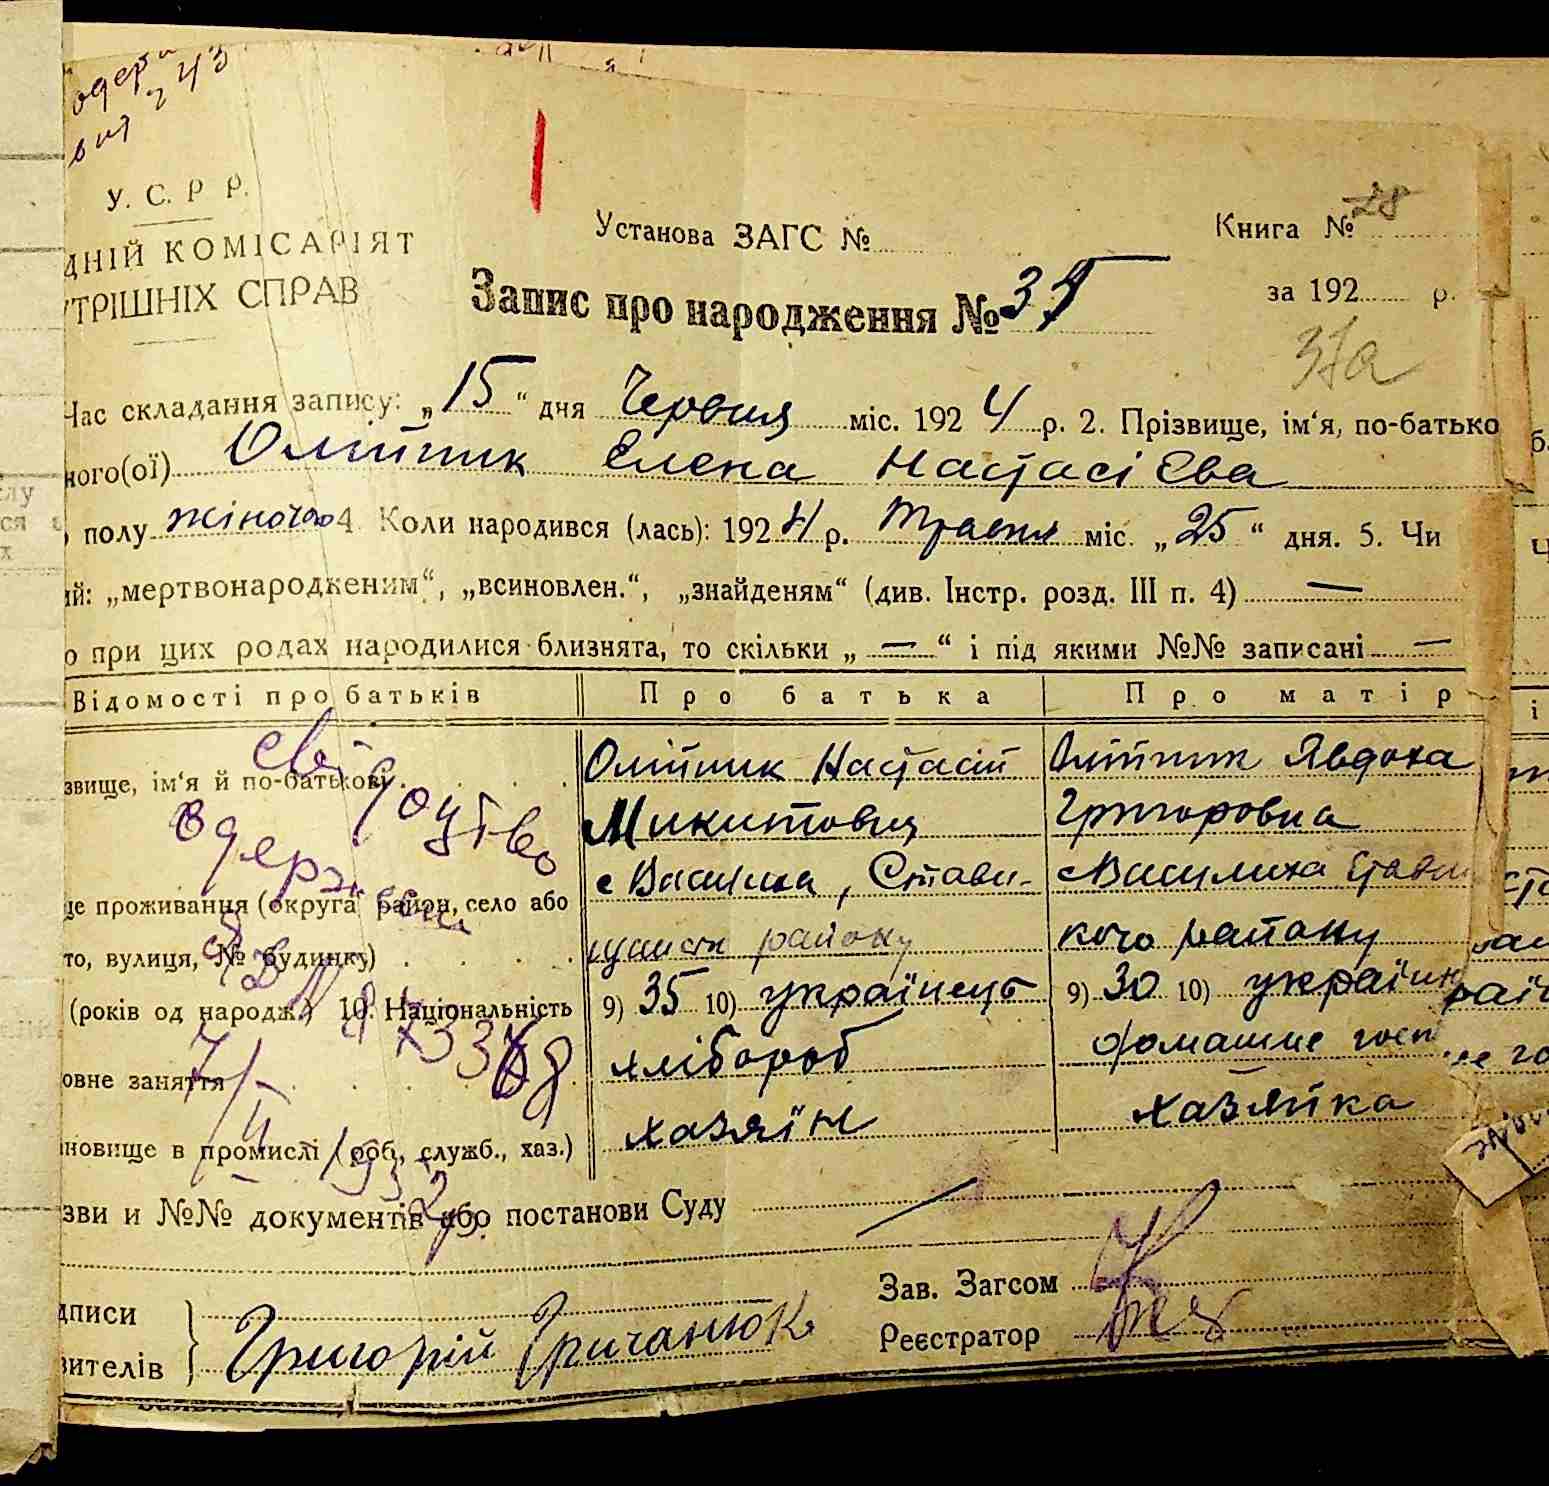 У. С. Р Р.
ДНІЙ КОМІСАРІЯТ
УТРІШНІХ СПРАВ
Установа ЗАГС №
Книга № 28
Запис про народження №
за 192 р.
37а
Час складання запису: „15“ дня Червня міс. 1924 р. 2. Прізвище, ім‘я, по-батько
ного(ої) Олійник Елена Настасієва
полу жіночого 4 Коли народився (лась): 1924 р. Травня міс. „25“ дня. 5. Чи
ий: „мертвонародженим“, „всиновлен.“, „знайденям“ (див. Інстр. розд. III п. 4) —
о при цих родах народилися близнята, то скільки „ — “ і під якими №№ записані —
Відомості про батьків Про батька Про матір
звище, ім‘я й по-батькові Олійник Настасій Олійник Явдоха
Микитович Григоровна
це проживання (округа район, село або с Василиха, Стави- с Василиха Ставис
то, вулиця, № будинку) щанськ району кого району
(років од народж.) 10. Національність 9) 35 10) українець 9) 30 10) україн
овне заняття хлібороб домашнє госп.
новище в промислі (роб., служб., хаз.) хазяїн хазяйка
свідоцтво
одержан
7/II 1932 р.
зви и №№ документів або постанови Суду —
дписи
вителів Григорій Гричанюк
Зав. Загсом
Реєстратор